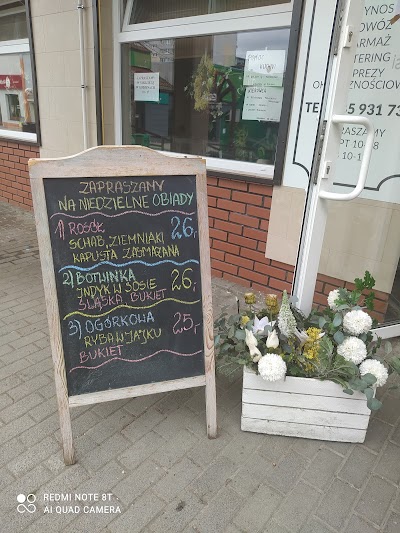 ZAPRASZAMY
NA NIEDZIELNE OBIADY
1) ROSÓŁ 26,-
SCHAB, ZIEMNIAKI
KAPUSTA ZASMAŻANA
2) BOTWINKA 26,-
INDYK W SOSIE
ŚLĄSKA BUKIET
3) OGÓRKOWA 25,-
RYBA W JAJKU
BUKIET
YNOS
OWÓZ
ARMAŻ
ATERING
PREZY
ZNOŚCIOW
TEL
5 931 73
RASZAMY
PT 10-18
10-1
REDMI NOTE 8T
AI QUAD CAMERA